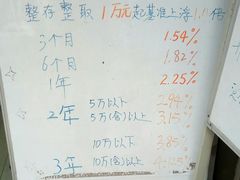 整存整取1万元起基准上浮1.1倍
3个月 1.54%
6个月 1.82%
1年 2.25%
2年 5万以下 2.94%
5万(含)以上 3.15%
10万以下 3.85%
3年 10万(含)以上 4.125%